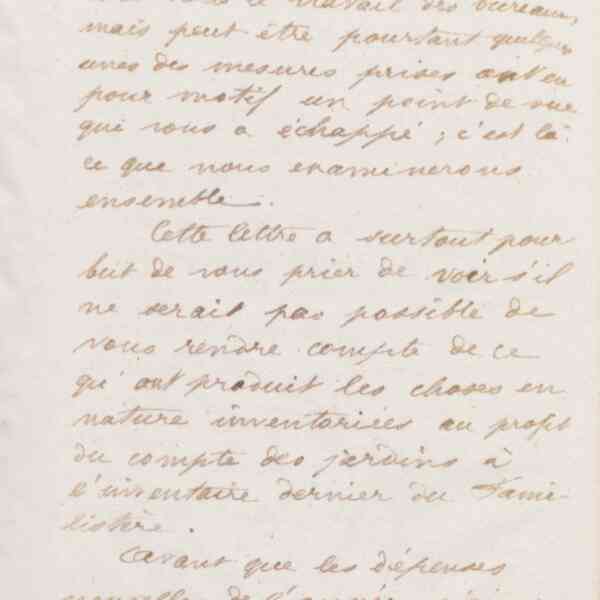 le travail des bureaux,
mais peut être pourtant quelques
unes des mesures prises ont eu
pour motif un point de vue
qui vous a échappé ; c'est là
ce que nous examinerons
ensemble.
Cette lettre a surtout pour
but de vous prier de voir s'il
ne serait pas possible de
vous rendre compte de ce
qu'ont produit les choses en
nature inventoriées au profit
du compte des jardins à
l'inventaire dernier du Fami-
listère.
Avant que les dépenses
nouvelles de l'année